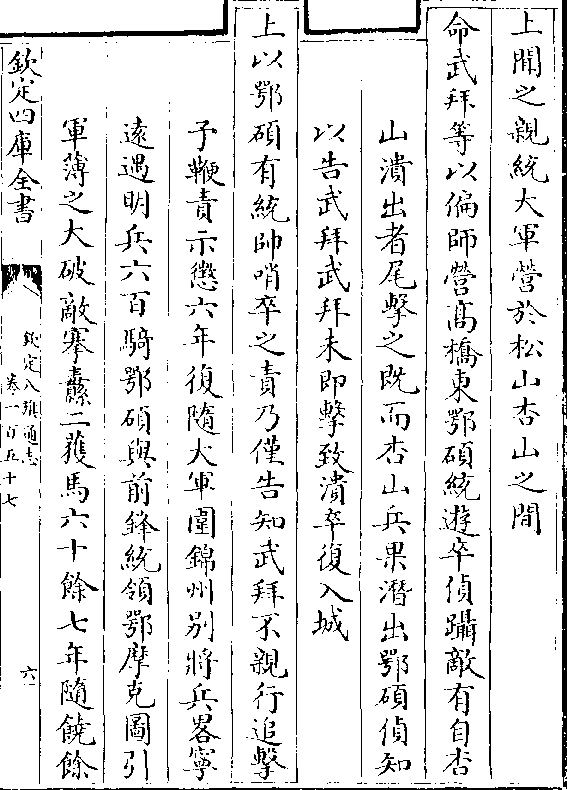 上聞之親統大軍營於松山杏山之間
命武拜等以偏師營髙橋東鄂碩統遊卒偵躡敵有自杏
山潰出者尾擊之既而杏山兵果潛出鄂碩偵知
以告武拜武拜未即擊致潰卒復入城
上以鄂碩有統帥哨卒之責乃僅告知武拜不親行追擊
予鞭責示懲六年復隨大軍圍錦州别將兵畧寧
遠遇明兵六百騎鄂碩與前鋒統領鄂摩克圖引
軍薄之大破敵搴纛二獲馬六十餘七年隨饒餘
欽定四庫全書
欽定八旗通志
卷一百五十七
六